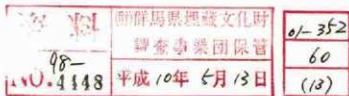 資料
98-
NO.4448
(財)群馬県埋蔵文化財
調査事業団保管
平成10年5月13日
01-352
60
(13)